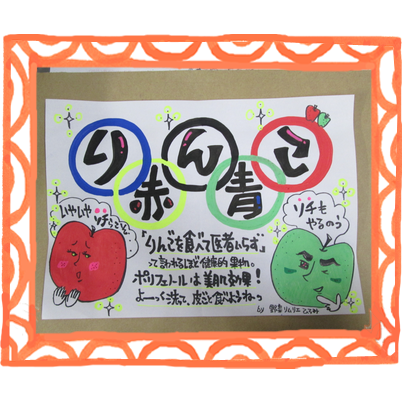 りんご
赤青
いやいや
ソチらこそ
ソチも
やるのう
「りんごを食べて医者いらず」
って言われるほど健康的果物。
ポリフェノールは美肌効果!
よーーく洗って、皮ごと食べようねっ
by 野菜ソムリエ